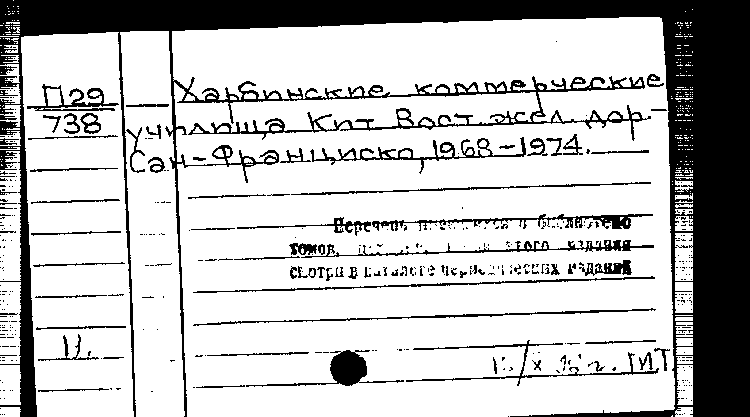 П29
738
Харбинские коммерческие
училища Кит. Вост. жел. дор.-
Сан-Франциско, 1968-1974.
Перечень имеющихся в библиотеке
томов, этого издания
смотри в каталоге периодических изданий